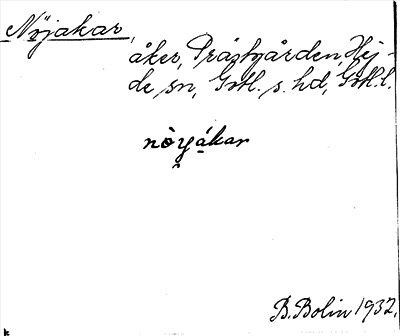 Nöjakar,
åker, Prästgården, Hej-
de sn, Gotl. s. hd, Gotl. l.
nòyákar
B. Bolin 1932.